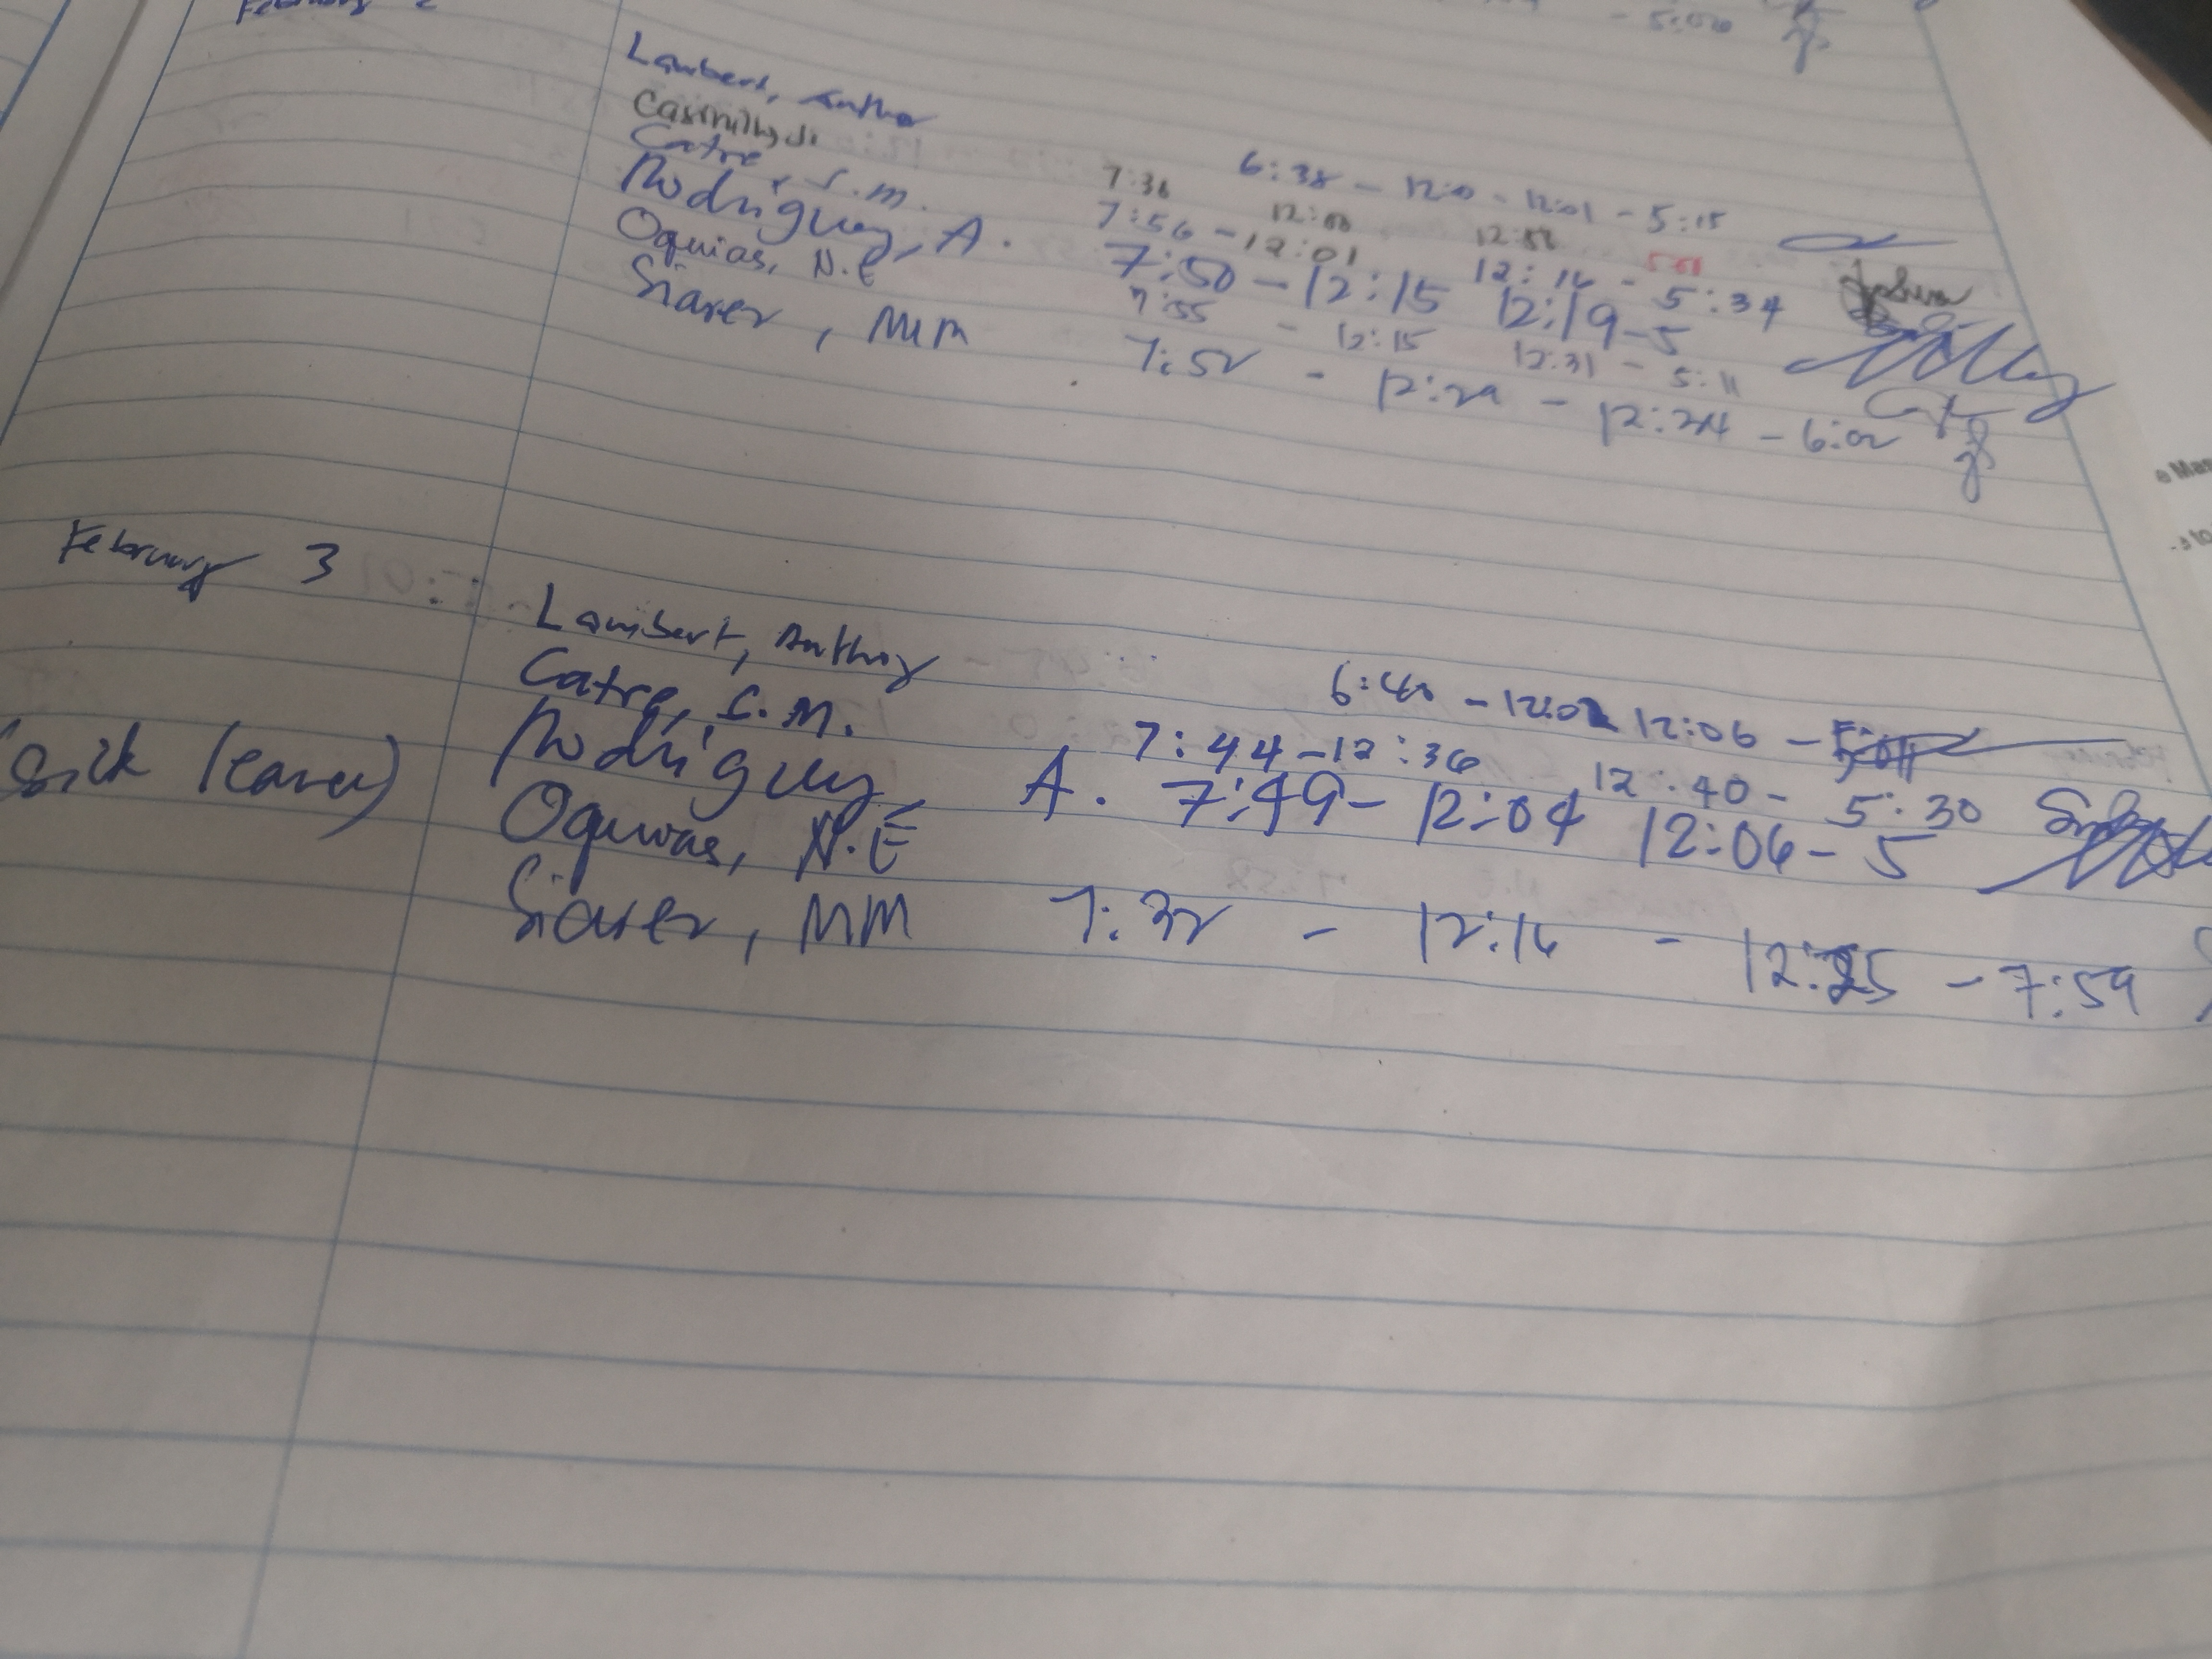 February 2
- 5:00
Lambert, Anthony 6:38 - 12:0 - 12:01 - 5:15
7:36 12:00 12:52 5:01 Joshua
Catre, S.M. 7:56 - 12:01 12:16 - 5:34
Rodriguez, A. 7:50 - 12:15 12:19 - 5
Oquias, N.E 7:55 - 12:15 12:31 - 5:11
Siarer, MM 7:52 - 12:29 - 12:24 - 6:02
February 3
Lambert, Anthony 6:40 - 12:02 12:06 -
Catre, S.M. 7:44 - 12:36 12:40 - 5:30
Rodriguez, A. 7:49 - 12:04 12:06 - 5
(Sick leave) Oquias, N.E
Siarer, MM 7:32 - 12:16 - 12:25 - 7:59